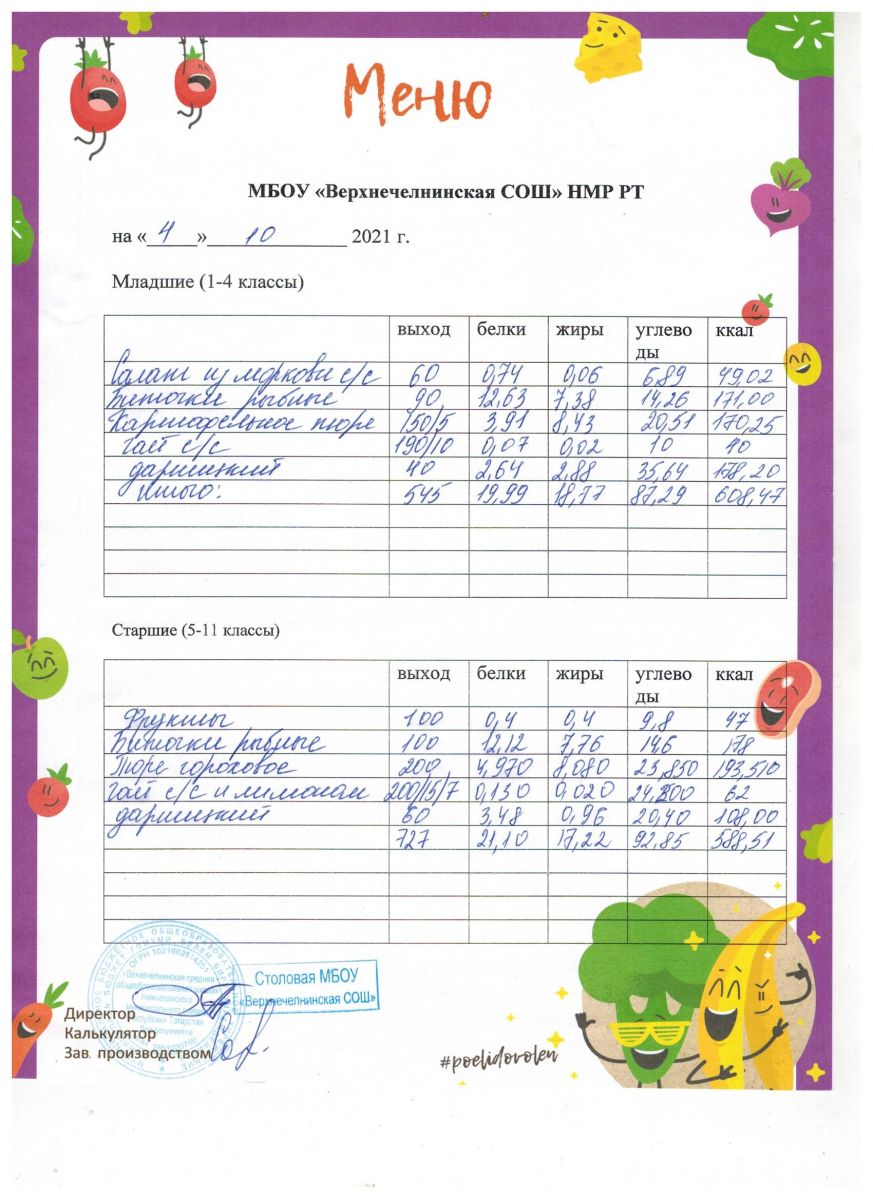 Меню
МБОУ «Верхнечелнинская СОШ» НМР РТ
на « 4 » 10 2021 г.
Младшие (1-4 классы)
выход белки жиры углево ккал
ды
Салат из моркови с/с 60 0,74 0,06 6,89 49,02
Биточки рыбные 90 12,63 7,38 14,26 171,00
Картофельное пюре 150/5 3,91 8,43 20,51 170,25
Чай с/с 190/10 0,07 0,02 10 40
дарницкий 40 2,64 2,88 35,64 178,20
Итого: 545 19,99 18,77 87,29 608,47
Старшие (5-11 классы)
выход белки жиры углево ккал
ды
Фрукты 100 0,4 0,4 9,8 47
Биточки рыбные 100 12,12 7,76 14,6 178
Пюре гороховое 200 4,970 8,080 23,850 193,510
Чай с/с и лимоном 200/15/7 0,130 0,020 24,200 62
дарницкий 60 3,48 0,96 20,40 108,00
727 21,10 17,22 92,85 588,51
Столовая МБОУ
«Верхнечелнинская СОШ»
Директор
Калькулятор
Зав. производством
#poelidovolen